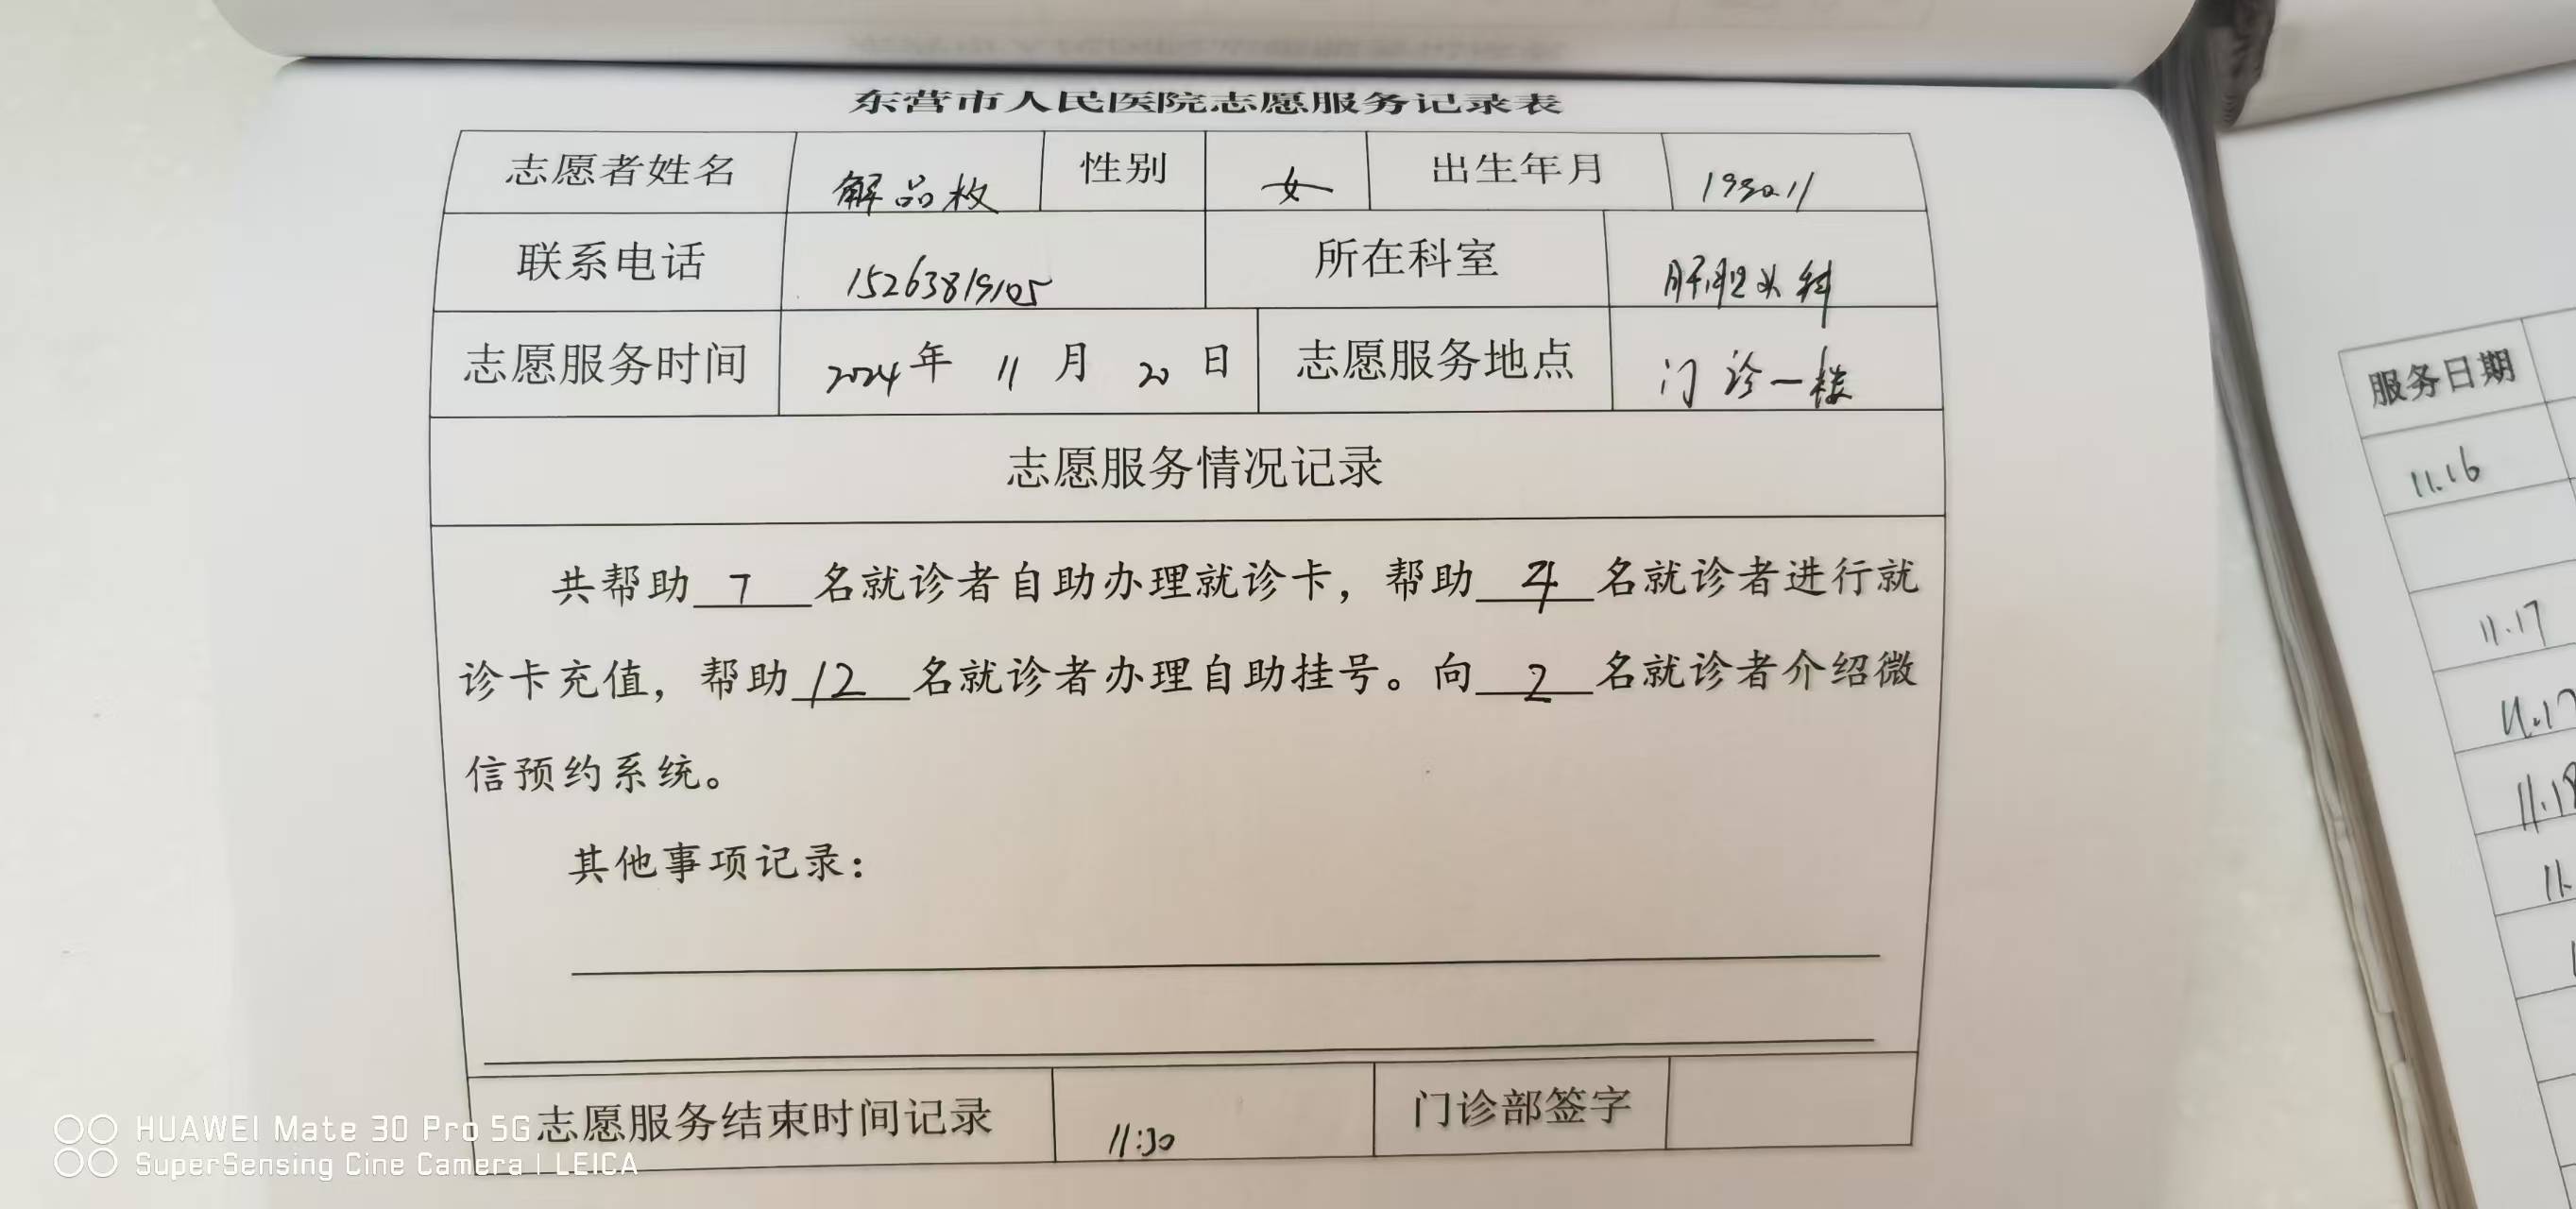 东营市人民医院志愿服务记录表
志愿者姓名 解品枚 性别 女 出生年月 1990.11
联系电话 15263819105 所在科室 肝胆外科
志愿服务时间 2024年 11 月 20 日 志愿服务地点 门诊一楼
志愿服务情况记录
共帮助 7 名就诊者自助办理就诊卡，帮助 4 名就诊者进行就
诊卡充值，帮助 12 名就诊者办理自助挂号。向 2 名就诊者介绍微
信预约系统。
其他事项记录：
志愿服务结束时间记录 11:30 门诊部签字
服务日期
11.16
11.17
11.17
11.18
HUAWEI Mate 30 Pro 5G
SuperSensing Cine Camera | LEICA